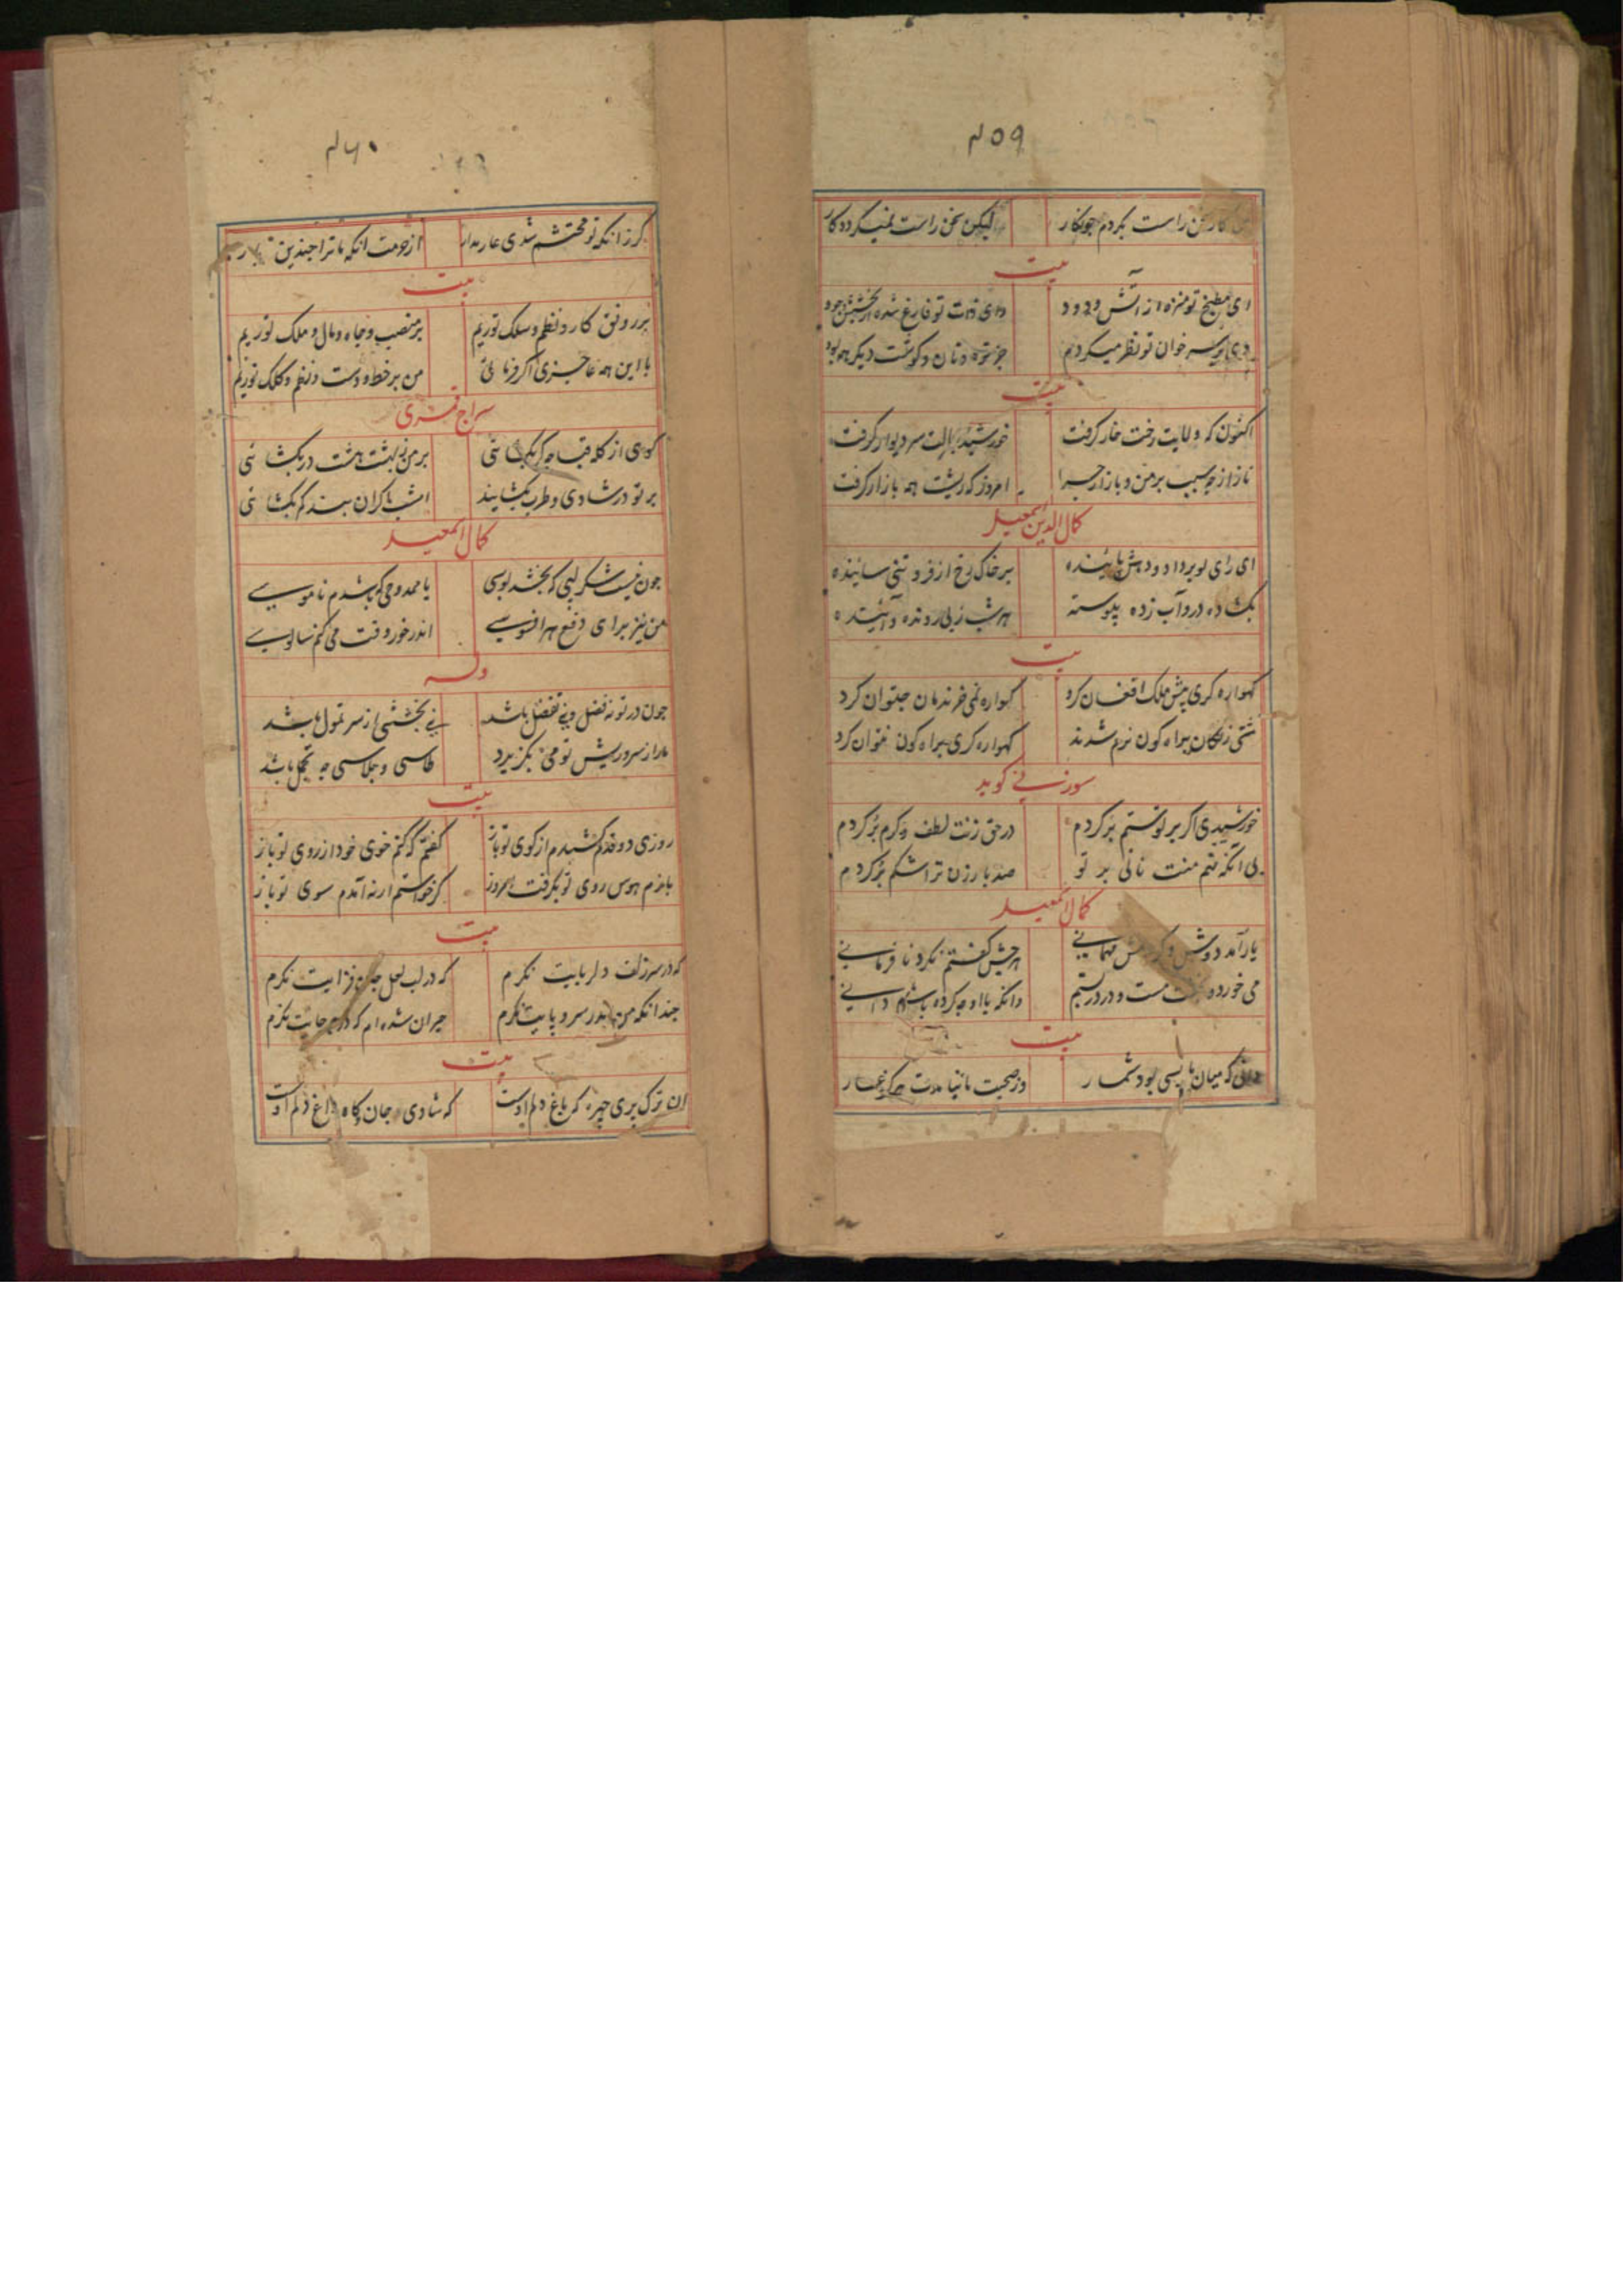 ۴۵۹
راست بکردم چونکار لیکن سخن راست نمیکردد کار
بیت
ای مطبخ تو منزه از آتش و دود وای ذات تو فارغ شده از بخشش و جود
سر خوان تو نظر میکردم جز تره و نان و کوشت دیکر همه بود
بیت
اکنون که ولایت رخت خار کرفت خورشید سر دیوار کرفت
ناز از چه سبب بر من و بازار چرا امروز که ریشت همه بازار کرفت
کمال الدین اسمعیل
ای رای تو بر داد و دهش پاینده بر خاک رخ از فروتنی ساینده
بکشاده در و آب زده پیوسته هر شب زپی رونده و آینده
بیت
کهواره کری پیش ملک افغان کرد کهواره نمی خرندمان چتوان کرد
براه کون نرم شدند کهواره کری براه کون نتوان کرد
سوزنی کوید
خورشیدی اکر بر تو ستم بر کردم در حق زنت لطف و کرم بر کردم
بی آنکه نهم منت نانی بر تو صد بار زن ترا شکم بر کردم
کمال اسمعیل
یار آمد دوش و کردمش مهمانی هر چیش کفتم نکرد نافرمانی
می خورد و مست و در در بستم وانکه با او چه کرده باشم دانی
بیت
دانی که میان ما بسی بود شمار وز صحبت ما نیامدت هرکز عار
۴۶۰
کر زانکه تو محتشم شدی عار مدار از حرمت انکه ما ترا چندین بار
بیت
بر رونق کار و نظم و سلک توریم بر منصب و جاه و مال و ملک توریم
با این همه عاجزی اکر فرمائی من بر خط و دست و نظم و کلک توریم
سراج قمری
کوی از کله قبا بر من ز بهشت هشت در بکشائی
بر تو در شادی و طرب بکشایند امشب اکر ان بند کمر بکشائی
کمال اسمعیل
چون نیست شکر لبی که بخشد بوسی یا ممدوحی که باشدم ناموسی
من نیز برای دفع هر افسوسی اندر خور وقت می کنم سالوسی
وله
چون در تو نه فضل و نی تفضل باشد نی بخششی از سر تمول باشد
مارا ز سر و ریش تو می نکزیرد طاسی و جلاسی چه تجمل باشد
بیت
روزی دو قدم کشیدم از کوی تو باز کفتم که کنم خوی خود از روی تو باز
بازم هوس روی تو بکرفت امروز کر خواستم ار نه آمدم سوی تو باز
بیت
که در سر زلف دلربایت نکرم که در لب لعل جان فزایت نکرم
چندانکه من اندر سر و پایت نکرم حیران شده ام که در چه جایت نکرم
بیت
ان ترک پری چهره که باغ دلم اوست که شادی جان و کاه داغ دلم اوست